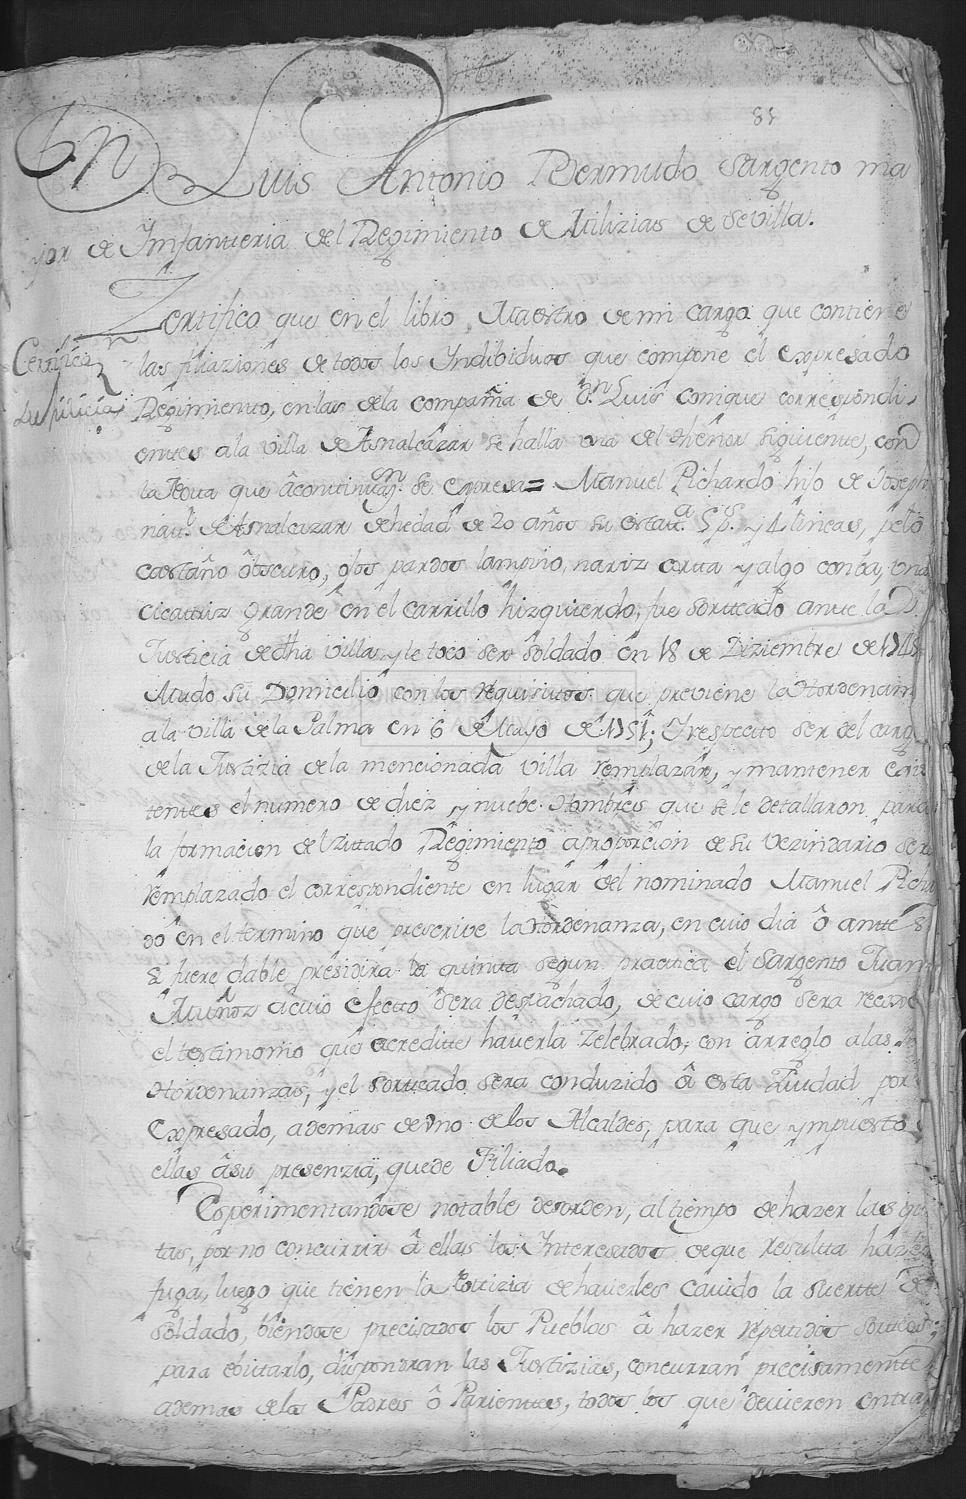 81
Dn Luis Antonio Bermudo Sargento ma
yor de Infanteria del Regimiento de Milizias de Sevilla.
Zertifico que en el libro Maestro de mi cargo que contiene
Certificazn
de Milicias
las filiaziones de todos los Yndibiduos que compone el expresado
Regimiento, en las dela compañia de Dn. Luis Conique correspondi
entes ala villa de Asnalcazar se halla una del thenor siguiente, con
la Nota que âcontinuazn. se expresa = Manuel Pichardo hijo de Joseph
natl. de Asnalcazar de hedad de 20 años su estata. 5 ps. y 4 lineas, pelo
castaño ôbscuro, ojos pardos lampiño, nariz corta y algo corba, una
cicatriz grande en el carrillo hizquierdo, fue sorteado ante la
Justicia de dha villa y le toco ser soldado en 18 de Diziembre de
Mudo su Domicilio con los requisitos que previene la Hordenam
ala villa dela Palma en 6 de Mayo de 1751; Y respecto ser del cargo
dela Justizia dela mencionada villa remplazar, y mantener exis
tentes el numero de diez y nuebe Hombres que se le detallaron para
la formacion del zittado Regimiento aproporcion de su vezindario sera
remplazado el correspondiente en lugar del nominado Manuel Picha
do en el termino que prescrive la Hordenanza, en cuio dia ô antte s
si fuere dable presidira la quinta segun practica el Sargento Juan
Muñoz acuio efecto sera despachado, de cuio cargo sera recojer
el testimonio que acreditte haverla zelebrado, con arreglo alas
Hordenanzas, y el sorteado sera conduzido â esta Ziudad por
Expresado, ademas de Vno de los Alcaldes, para que ympuesto
ellas âsu presenzia, quede Filiado.
Experimentandose notable desorden, al tiempo de hazer las qu
tas, por no concurrir â ellas los Interesados de que resulta hazer
fuga, luego que tienen la Notizia de haverles cavido la suertte de
soldado, biendose precisados los Pueblos â hazer repetidos sorteos;
para ebitarlo, dispondran las Justizias, concurran precisamente
ademas de los Padres ô Parientes, todos los que devieren entra